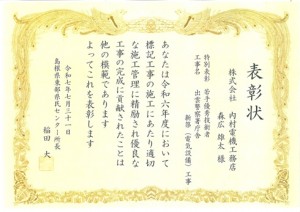 表彰状
株式会社 内村電機工務店
森広雄太様
特別表彰 若手優秀技術者
工事名 出雲警察署庁舎
新築(電気設備)工事
あなたは令和六年度において
標記工事の施工にあたり適切
な施工管理に精励され優良な
工事の完成に貢献されたことは
他の模範であります
よってこれを表彰します
令和七年七月三十一日
島根県東部県民センター所長
福田 大